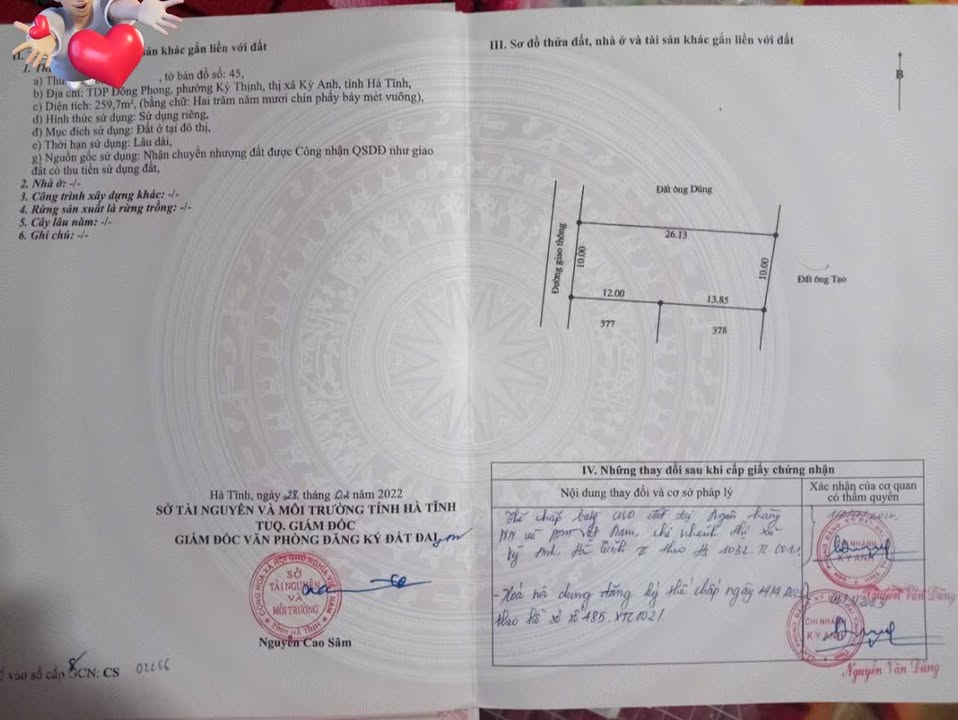 sản khác gắn liền với đất
a) Thử
, tờ bản đồ số: 45,
b) Địa chỉ: TDP Đông Phong, phường Kỳ Thịnh, thị xã Kỳ Anh, tỉnh Hà Tĩnh,
c) Diện tích: 259,7m², (bằng chữ: Hai trăm năm mươi chín phẩy bảy mét vuông),
d) Hình thức sử dụng: Sử dụng riêng,
đ) Mục đích sử dụng: Đất ở tại đô thị,
e) Thời hạn sử dụng: Lâu dài,
g) Nguồn gốc sử dụng: Nhận chuyển nhượng đất được Công nhận QSDĐ như giao
đất có thu tiền sử dụng đất,
2. Nhà ở: -/-
3. Công trình xây dựng khác: -/-
4. Rừng sản xuất là rừng trồng: -/-
5. Cây lâu năm: -/-
6. Ghi chú: -/-
Hà Tĩnh, ngày 28 tháng 02 năm 2022
SỞ TÀI NGUYÊN VÀ MÔI TRƯỜNG TỈNH HÀ TĨNH
TUQ. GIÁM ĐỐC
GIÁM ĐỐC VĂN PHÒNG ĐĂNG KÝ ĐẤT ĐAI
SỞ
TÀI NGUYÊN
VÀ
MÔI TRƯỜNG
TỈNH HÀ TĨNH
Nguyễn Cao Sâm
vào sổ cấp GCN: CS 02266
III. Sơ đồ thửa đất, nhà ở và tài sản khác gắn liền với đất
B
Đất ông Dũng
Đường giao thông
26.13
10.00
10.00
Đất ông Tạo
12.00
13.85
377
378
IV. Những thay đổi sau khi cấp giấy chứng nhận
Nội dung thay đổi và cơ sở pháp lý
Xác nhận của cơ quan
có thẩm quyền
Thế chấp bằng QSD đất tại Ngân hàng
Nam, chi nhánh thị xã
Kỳ Anh, Hà Tĩnh II theo
CHI NHÁNH
KỲ ANH
Nguyễn Văn Dũng
- Xoá nội dung đăng ký thế chấp ngày
theo hồ sơ số 485.
CHI NHÁNH
KỲ ANH
Nguyễn Văn Dũng